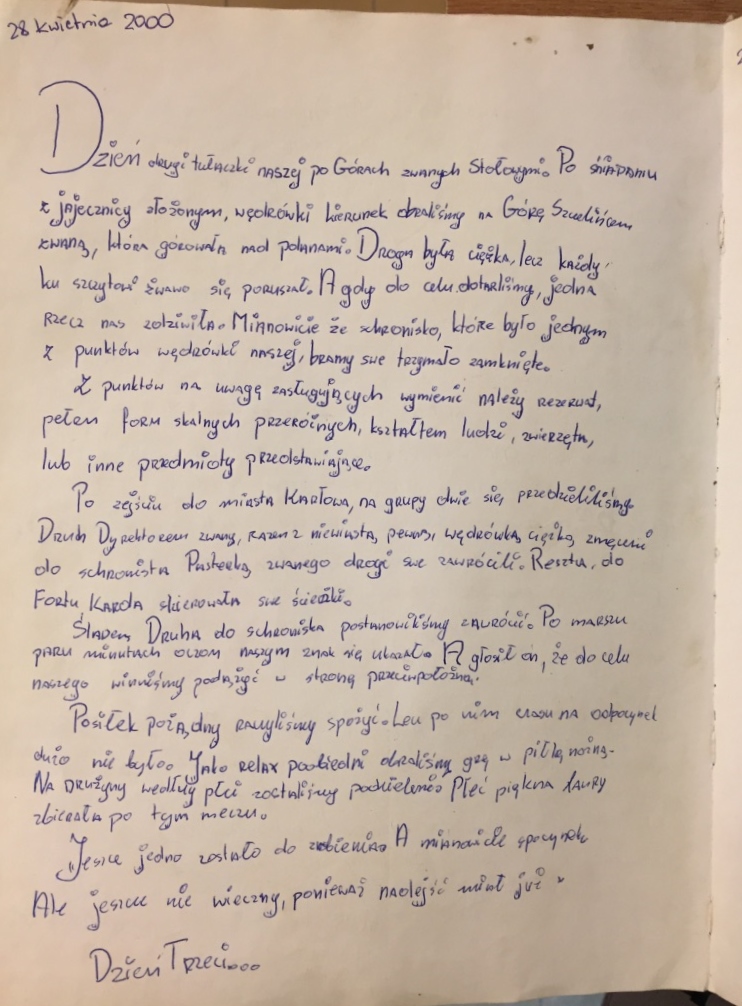 28 kwietnia 2000
Dzień drugi tułaczki naszej po Górach zwanych Stołowymi. Po śniadaniu
z jajecznicy złożonym, wędrówki kierunek obraliśmy na Górę Szczelińcem
zwaną, która górowała nad polanami. Droga była ciężka, lecz każdy
ku szczytowi żwawo się poruszał. A gdy do celu dotarliśmy, jedna
rzecz nas zdziwiła. Mianowicie że schronisko, które było jednym
z punktów wędrówki naszej, bramy swe trzymało zamknięte.
Z punktów na uwagę zasługujących wymienić należy rezerwat,
pełen form skalnych przeróżnych, kształtem ludzi, zwierzęta,
lub inne przedmioty przedstawiające.
Po zejściu do miasta Karłowa, na grupy dwie się przedzieliliśmy.
Druh Dyrektorem zwany, razem z niewiastą pewną, wędrówką ciężką zmęczeni
do schroniska Pasterką zwanego drogi swe zawrócili. Reszta, do
Fortu Karola skierowała swe ścieżki.
Śladem Druha do schroniska postanowiliśmy zawrócić. Po marszu
paru minutach oczom naszym znak się ukazał. A głosił on, że do celu
naszego winniśmy podążyć w stronę przeciwpołożną.
Posiłek porządny raczyliśmy spożyć. Lecz po nim czasu na odpoczynek
dużo nie było. Jako relax poobiedni obraliśmy grę w piłkę nożną.
Na drużyny według płci zostaliśmy podzieleni. Płeć piękna laury
zbierała po tym meczu.
Jeszcze jedno zostało do zrobienia. A mianowicie spoczynek
Ale jeszcze nie wieczny, ponieważ nadejść miał już
Dzień Trzeci...